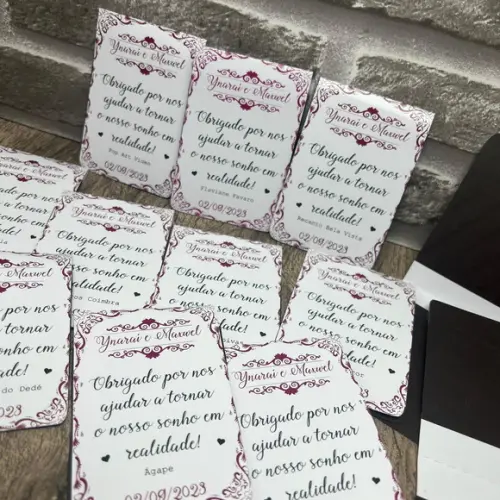 Ynaraí e Maxwel
Obrigado por nos
ajudar a tornar
o nosso sonho em
realidade!
Pop Art Video
02/09/2023
Ynaraí e Maxwel
Obrigado por nos
ajudar a tornar
o nosso sonho em
realidade!
Flaviane Favaro
02/09/2023
Ynaraí e Maxwel
Obrigado por nos
ajudar a tornar
o nosso sonho em
realidade!
Recanto Bela Vista
02/09/2023
Maxwel
por nos
tornar
Ynaraí e Maxwel
Obrigado por nos
ajudar a tornar
nosso sonho em
realidade!
Coimbra
Ynaraí e Maxwel
Obrigado por nos
ajudar a tornar
o nosso sonho em
realidade!
Ynaraí e Maxwel
Obrigado por nos
ajudar a tornar
o nosso sonho em
realidade!
e Maxwel
por nos
tornar
sonho em
realidade!
do Dedé
2023
Ynaraí e Maxwel
Obrigado por nos
ajudar a tornar
o nosso sonho em
realidade!
Agape
02/09/2023
Ynaraí e Maxwel
Obrigado por nos
ajudar a tornar
o nosso sonho em
realidade!